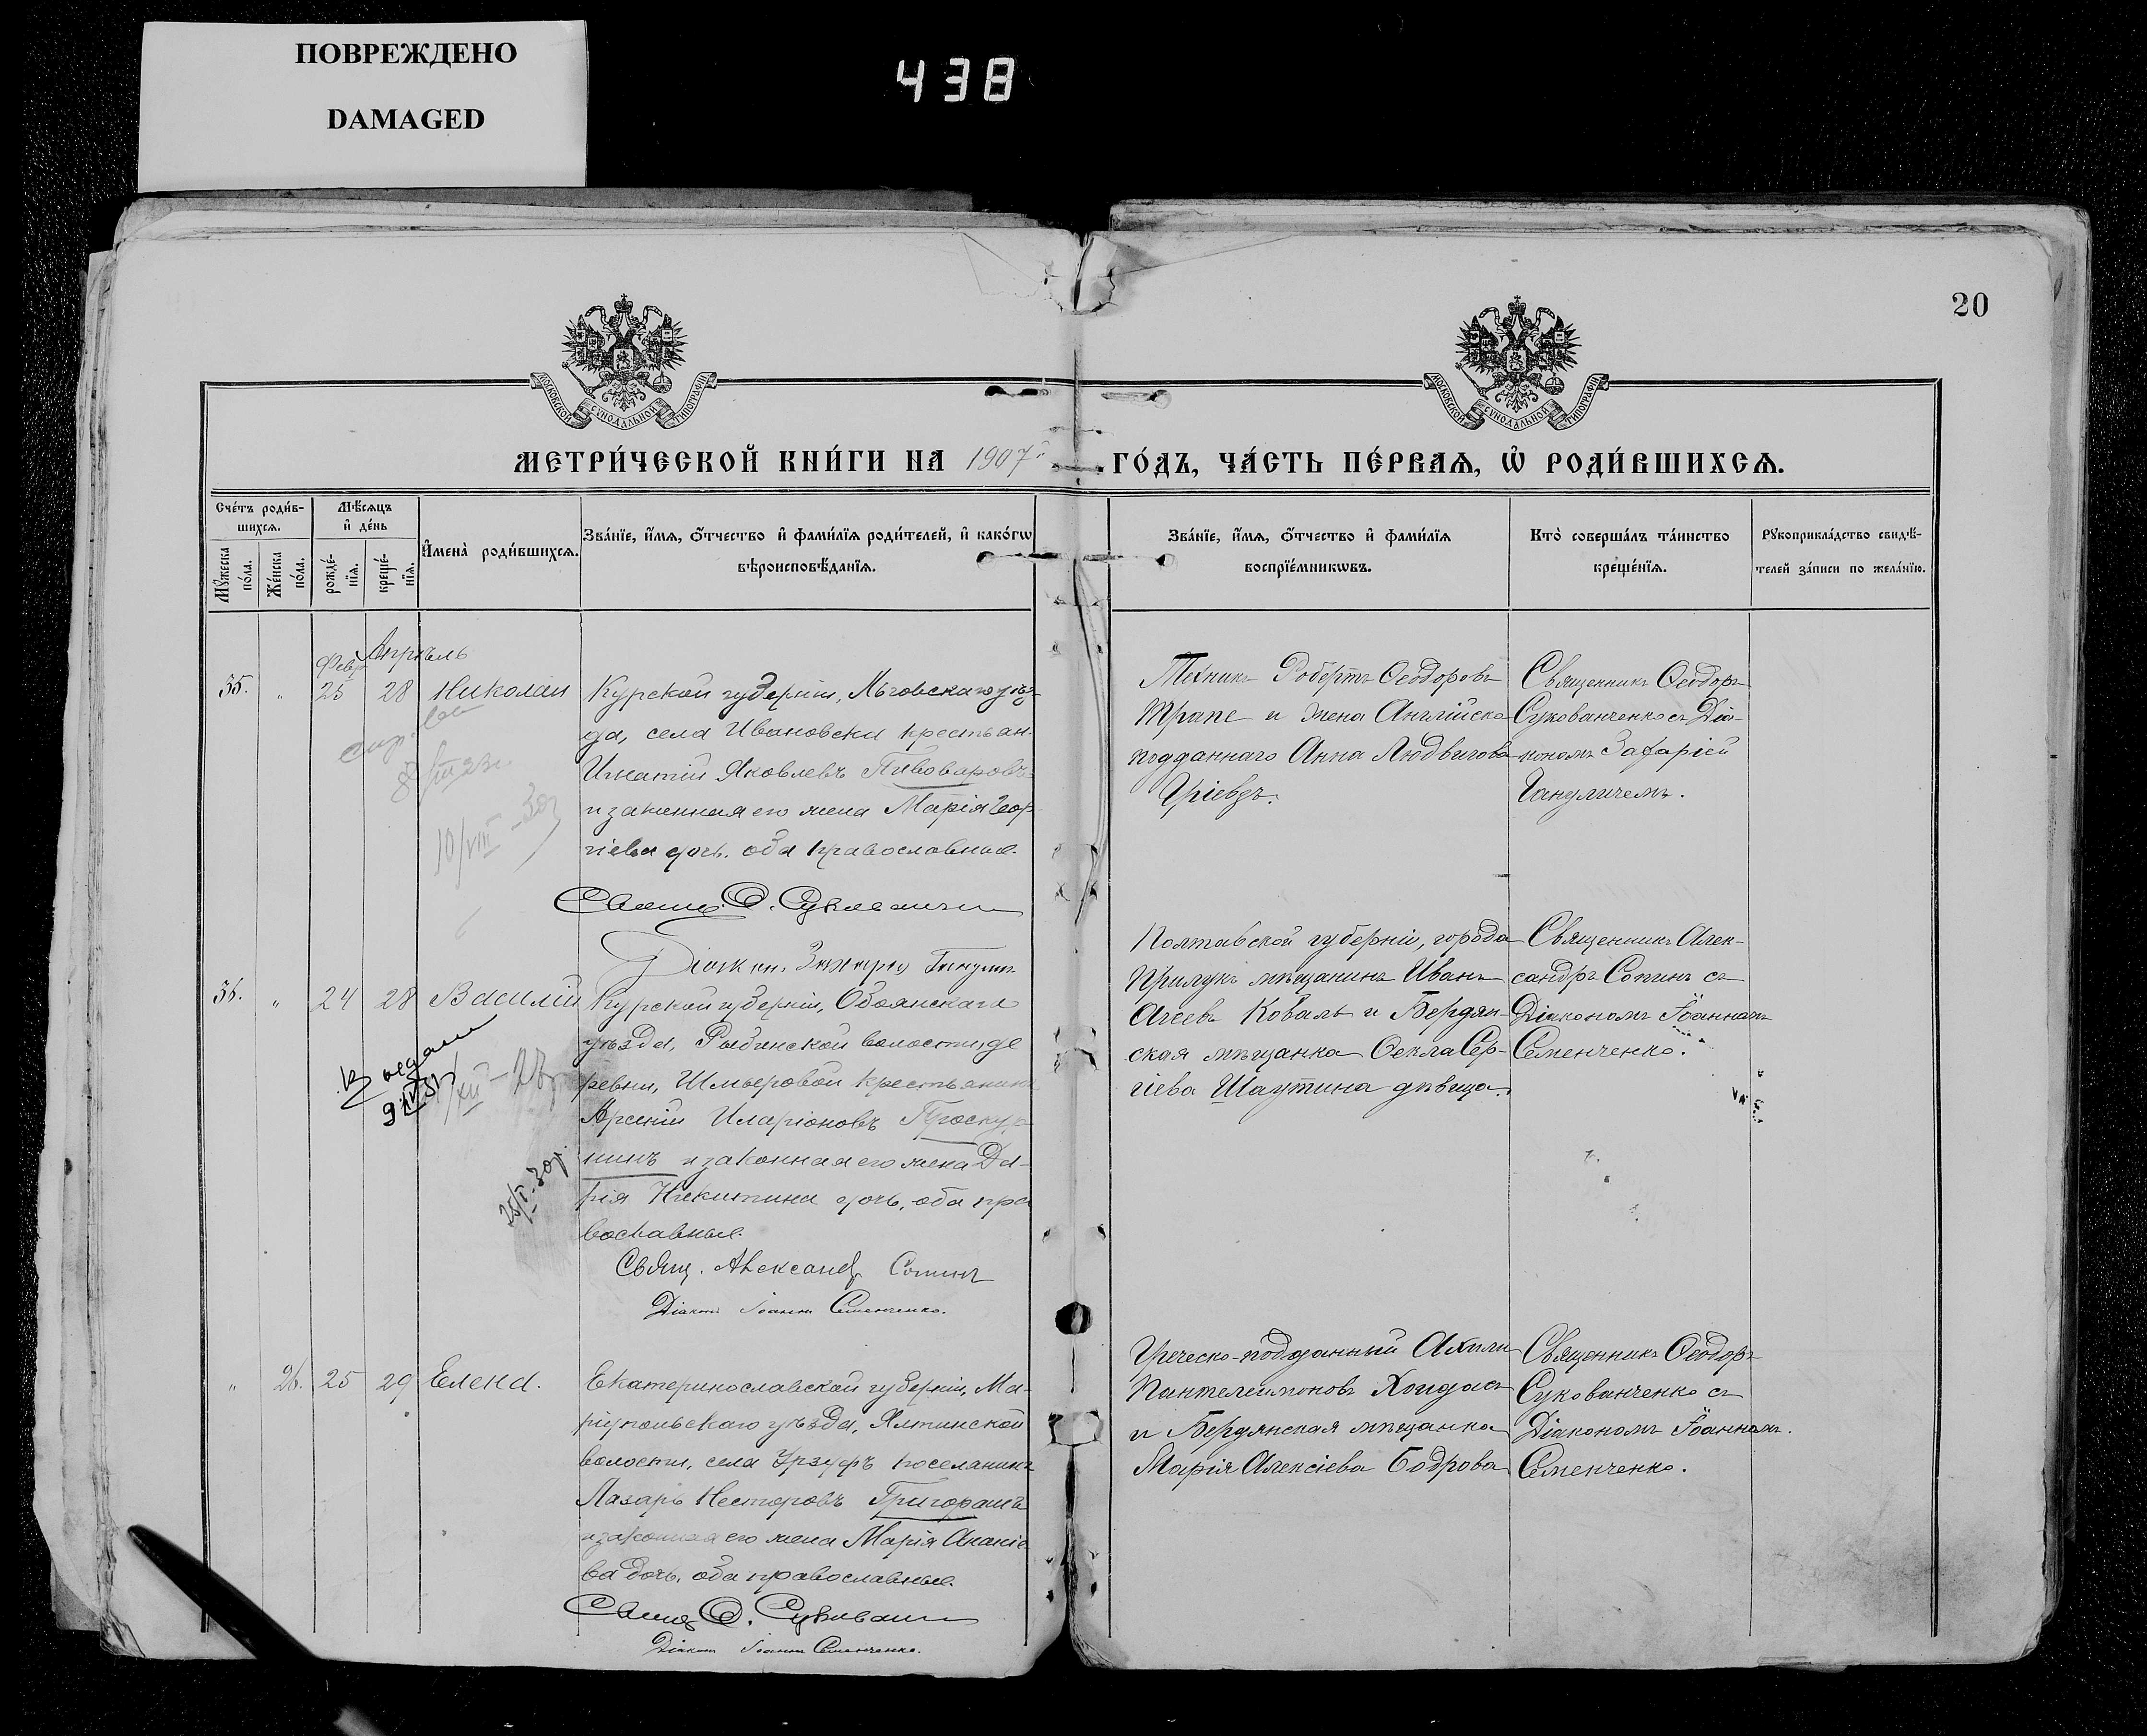 ПОВРЕЖДЕНО
DAMAGED
438
20
МОСКОВСКОЙ СѴНОДАЛЬНОЙ ТИПОГРАФІИ
МОСКОВСКОЙ СѴНОДАЛЬНОЙ ТИПОГРАФІИ
МЕТРИ́ЧЕСКОЙ КНИ́ГИ НА 1907 ГО́ДЪ, ЧА́СТЬ ПЕ́РВАѦ, Ѡ҆ РОДИ́ВШИХСѦ.
Сче́тъ роди́в-
шихсѧ.
Мꙋ́жеска
по́ла.
Же́нска
по́ла.
Мѣ́сѧцъ
и҆ де́нь
рожде́-
нїѧ.
креще́-
нїѧ.
И҆мена̀ роди́вшихсѧ.
Зва́нїе, и҆́мѧ, ѻ҆́тчество и҆ фами́лїѧ роди́телей, и҆ како́гѡ
вѣроисповѣ́данїѧ.
Зва́нїе, и҆́мѧ, ѻ҆́тчество и҆ фами́лїѧ
воспрїе́мникѡвъ.
Кто̀ соверша́лъ та́инство
креще́нїѧ.
Рꙋкоприкла́дство свидѣ́-
телей за́писи по жела́нїю.
Февр. Апрѣль
35. " 25 28 Николай
Курской губерніи, Льговскаго уѣз-
да, села Ивановски крестьян.
Игнатій Яковлевъ Пивоваровъ
и законная его жена Марія Геор-
гіева дочь. оба православные.
Свящ. Ѳ. Сукованченко
Діакон. Захарій Гануличъ
Техникъ Робертъ Ѳеодоровъ
Трапе и жена Англійско-
подданнаго Анна Людвигова
Гріевзъ.
Священникъ Ѳеодоръ
Сукованченко съ Діа-
кономъ Захаріей
Гануличемъ.
36. " 24 28 Василій
10/VIII-30г
Выдан
25/I-30г.
Курской губерніи, Обоянскаго
уѣзда, Рыбинской волости, де
ревни, крестьянинъ
Арсеній Иларіоновъ Проскур-
нинъ и законная его жена Да-
рія Никитина дочь, оба пра
вославные.
Свящ. Александр Сопинъ
Діаконъ Іоаннъ Семенченко.
Полтавской губерніи, города
Прилукъ мѣщанинъ Иванъ
Агеевъ Коваль и Бердян-
ская мѣщанка Ѳекла Сер-
гіева Шаутина дѣвица.
Священникъ Алек-
сандръ Сопинъ съ
Діакономъ Іоанномъ
Семенченко.
" 26. 25 29 Елена.
Екатеринославской губерніи, Ма-
ріупольскаго уѣзда, Ялтинской
волости, села Урзуфъ поселянинъ
Лазарь Несторовъ Григорашъ
и законная его жена Марія Ананіе
ва дочь. оба православные.
Свящ. Ѳ. Сукованченко
Діаконъ Іоаннъ Семенченко.
Греческо-подданный Ахили
Пантелеимоновъ
и Бердянская мѣщанка
Марія Алексіева Бодрова
Священникъ Ѳеодоръ
Сукованченко съ
Діакономъ Іоанномъ.
Семенченко.